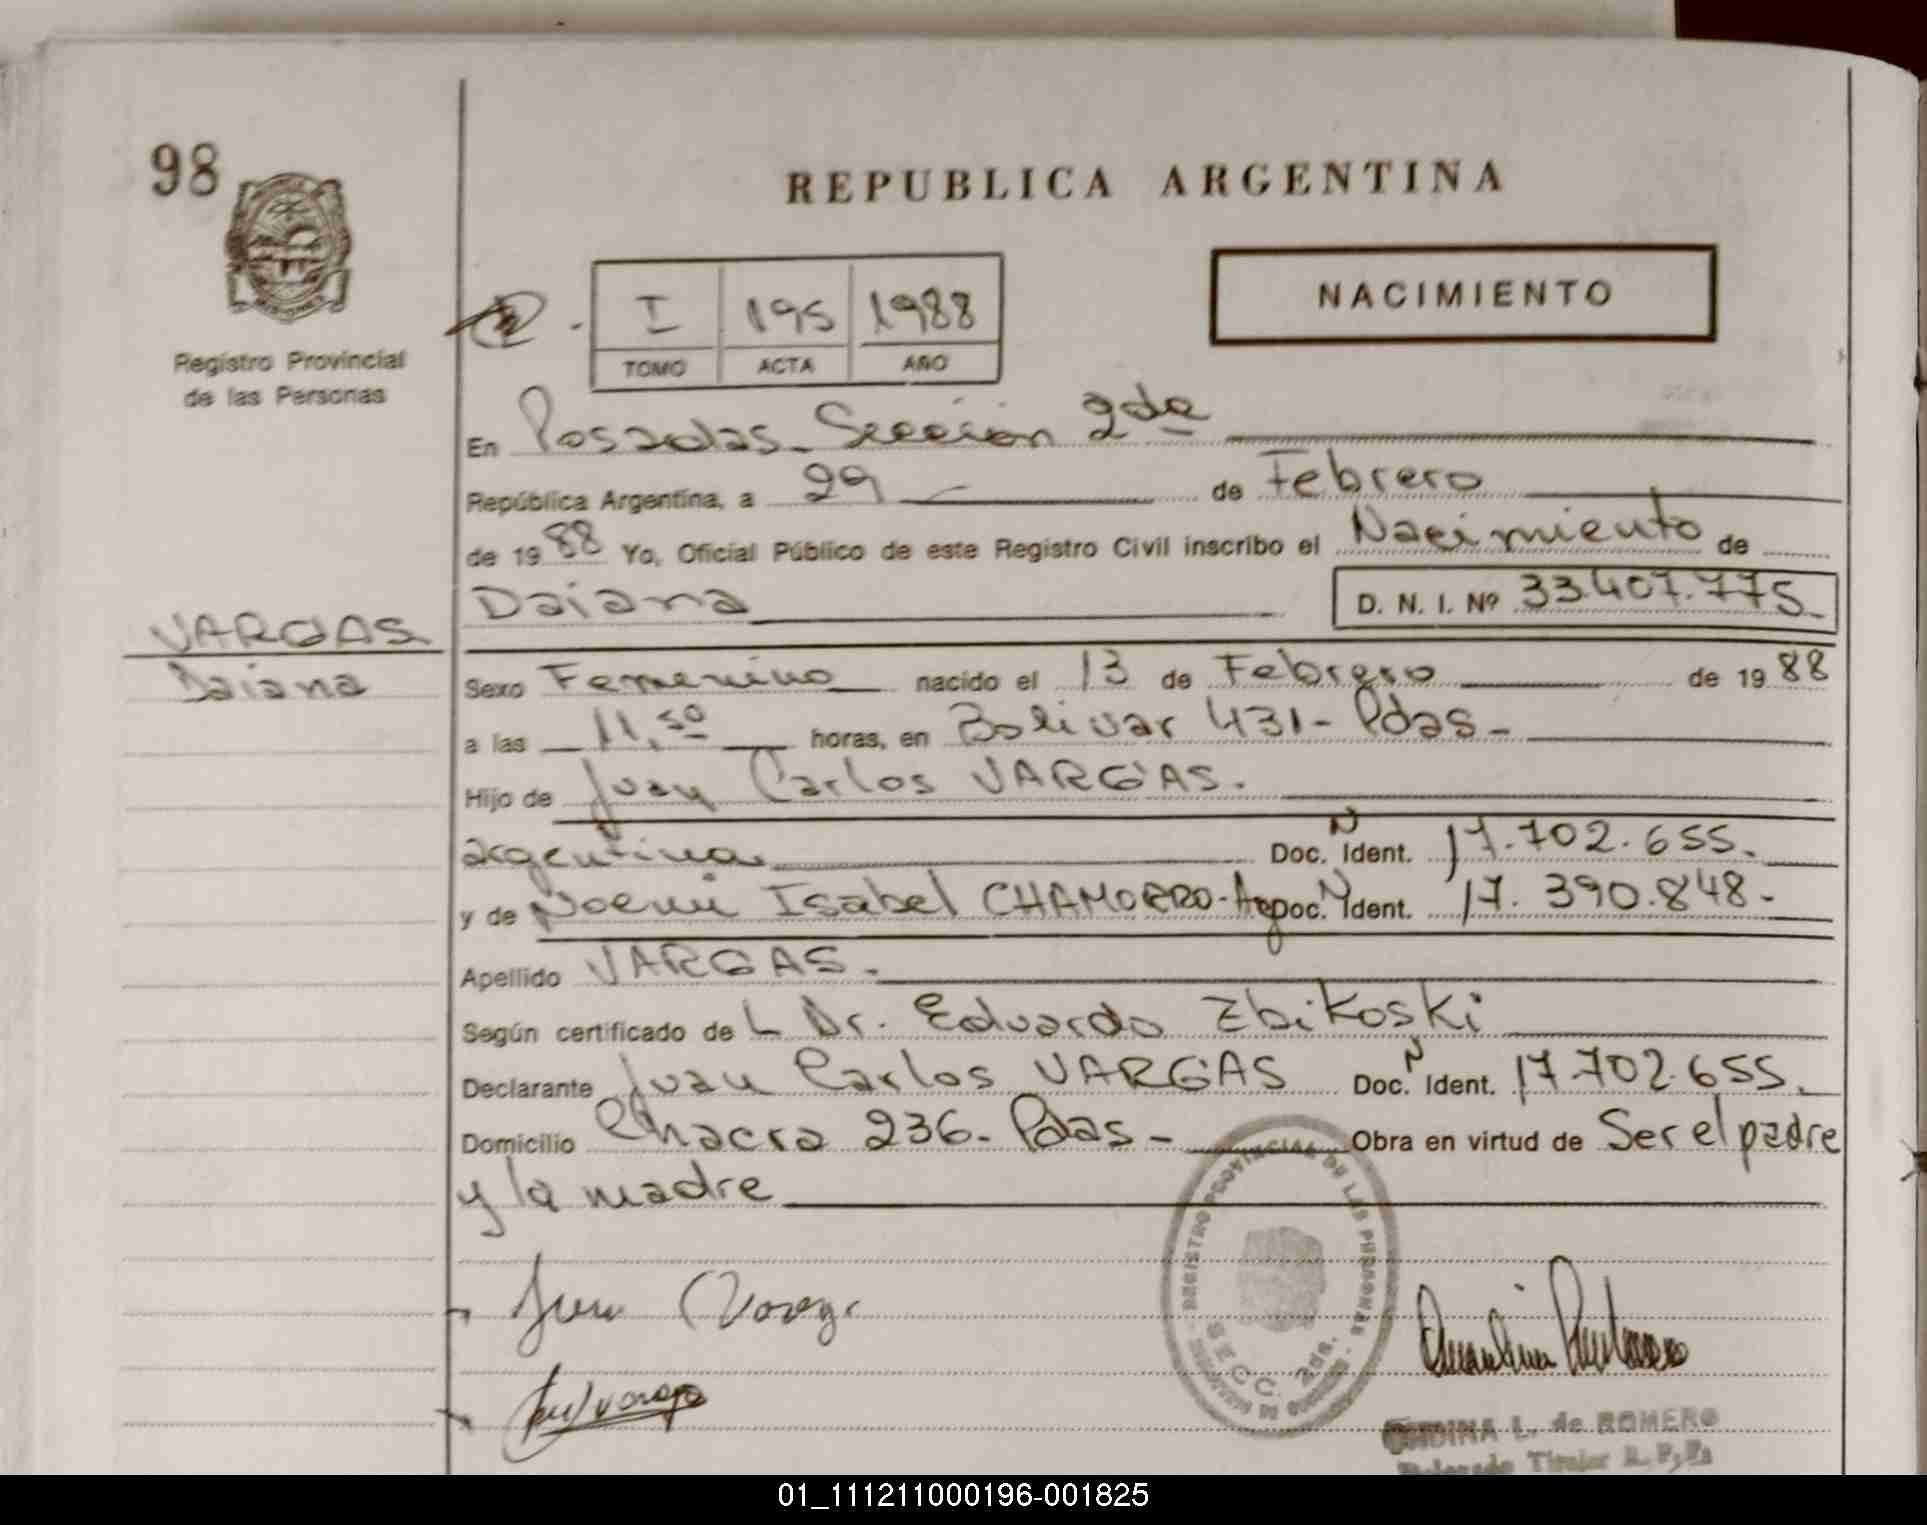 98
REPUBLICA ARGENTINA
I 195 1988
TOMO ACTA AÑO
NACIMIENTO
Registro Provincial
de las Personas
En Posadas - Sección 2da
República Argentina, a 29 de Febrero
de 1988 Yo, Oficial Público de este Registro Civil inscribo el Nacimiento de
Daiana D. N. I. Nº 33.407.775.
VARGAS
Daiana
Sexo Femenino nacido el 13 de Febrero de 1988
a las 11,50 horas, en Bolivar 431 - Pdas -
Hijo de Juan Carlos VARGAS.
argentina Doc. N Ident. 17.702.655.
y de Noemi Isabel CHAMORRO - Arg Doc. N Ident. 17.390.848 -
Apellido VARGAS.
Según certificado de L Dr. Eduardo Zbikoski
Declarante Juan Carlos VARGAS Doc. N Ident. 17.702.655.
Domicilio Chacra 236 - Pdas - Obra en virtud de Ser el padre
y la madre
REGISTRO PROVINCIAL DE LAS PERSONAS
SECC. 2da.
L. de ROMERO
Titular R. P. Ps
01_111211000196-001825